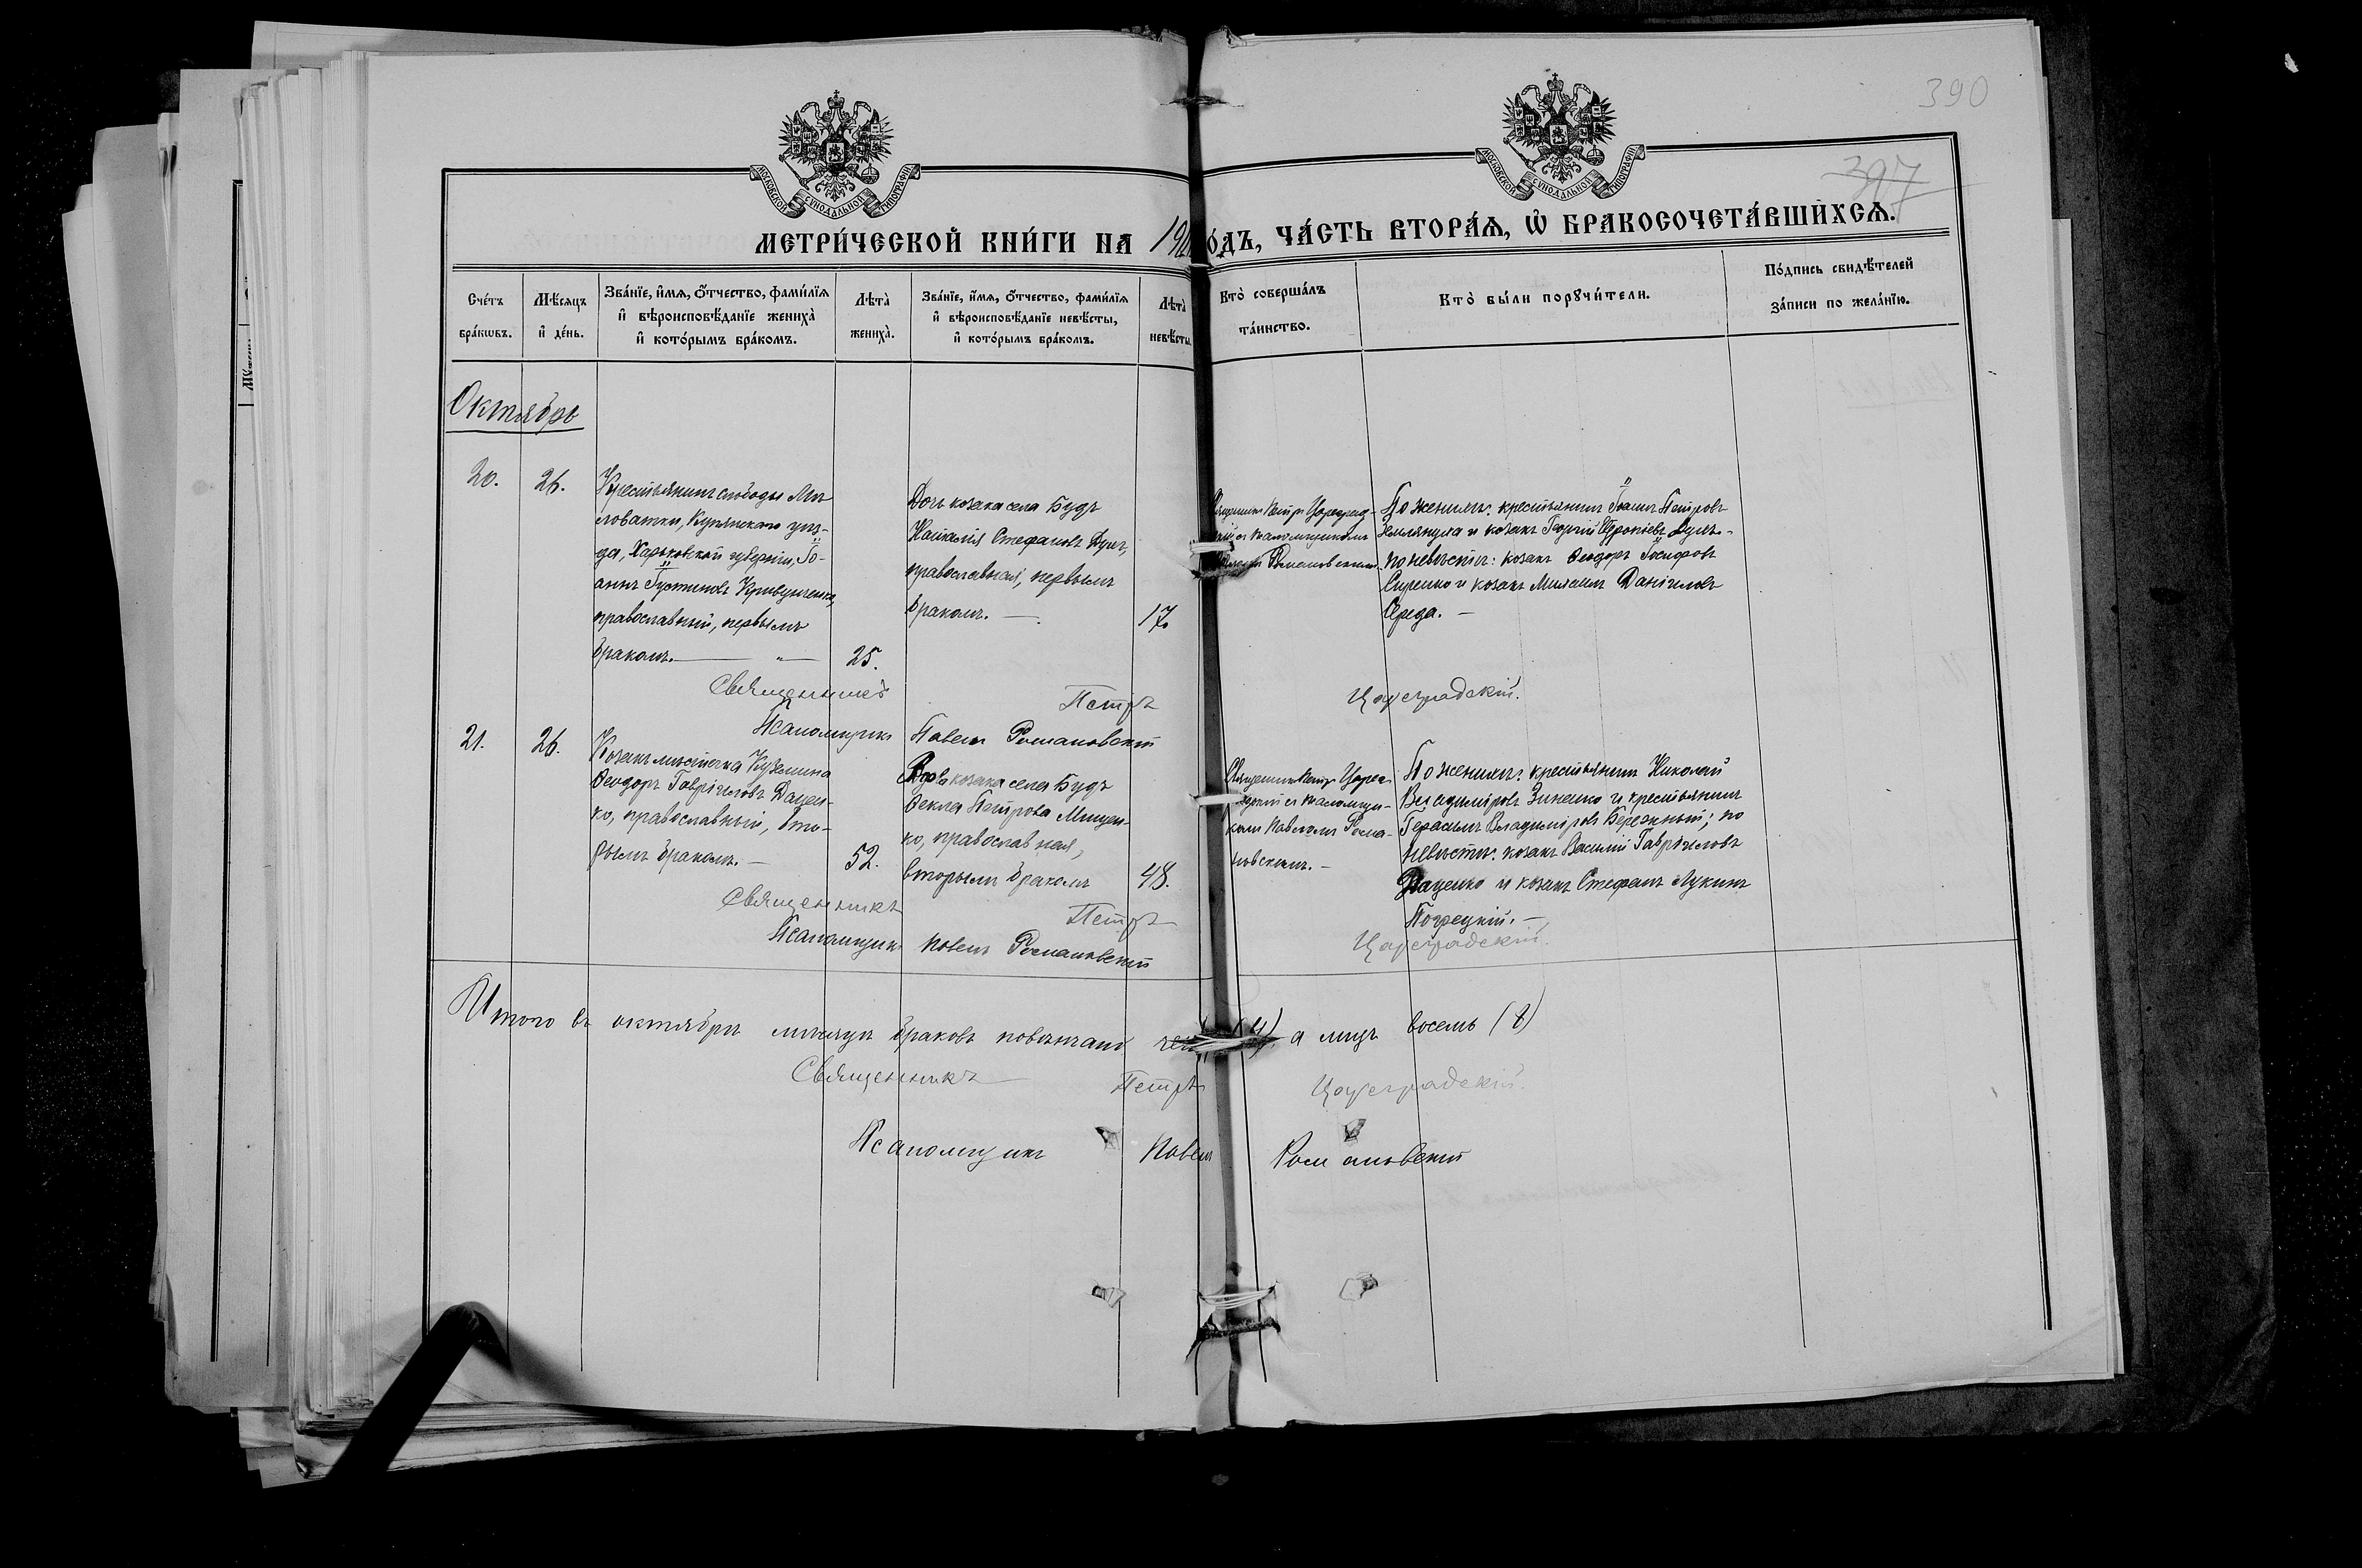 390
397
МОСКОВСКОЙ СѴНОДАЛЬНОЙ ТИПОГРАФІИ
МОСКОВСКОЙ СѴНОДАЛЬНОЙ ТИПОГРАФІИ
МЕТРИ́ЧЕСКОЙ КНИ́ГИ НА 190 ГО́ДЪ, ЧА́СТЬ ВТОРА́Ѧ, Ѡ҆ БРАКОСОЧЕТА́ВШИХСѦ.
Сче́тъ бра́кѡвъ.
Мѣ́сяцъ и҆ де́нь.
Зва́нїе, и҆́мѧ, ѻ҆́тчество, фами́лїѧ и҆ вѣроисповѣ́данїе жениха̀ и҆ кото́рымъ бра́комъ.
Лѣта̀ жениха̀.
Зва́нїе, и҆́мѧ, ѻ҆́тчество, фами́лїѧ и҆ вѣроисповѣ́данїе невѣ́сты, и҆ кото́рымъ бра́комъ.
Лѣта̀ невѣ́сты.
Кто̀ соверша́лъ та́инство.
Кто̀ бы́ли порꙋчи́тели.
По́дпись свидѣ́телей за́писи по жела́нїю.
Октябрь
20.
26.
Крестьянинъ слободы Ми-
ловатки, Купянскаго уѣз-
да, Харьковской губерніи, Іо-
аннъ Іустиновъ Кривущенко,
православный, первымъ
бракомъ. — " —
25.
Дочь козака села Будъ
Наталія Стефановъ Дуля,
православная, первымъ
бракомъ. —
17.
Священникъ Петръ Цареград-
скій съ псаломщикомъ
Павломъ Романовскимъ.
По женихѣ: крестьянинъ Іоаннъ Петровъ
Землянуха и козакъ Георгій Ероѳіевъ Дуля. -
по невѣстѣ: козакъ Ѳеодоръ Іосифовъ
Сиренко и козакъ Михаилъ Даніиловъ
Середа. —
Священникъ Петръ Цареградскій.
Псаломщикъ Павелъ Романовскій
21.
26.
Козакъ мѣстечка Куземина
Ѳеодоръ Гавріиловъ Дацен-
ко, православный, вто-
рымъ бракомъ. —
52.
Вдова козака села Будъ
Ѳекла Петрова Мищен-
ко, православная,
вторымъ бракомъ
48.
Священникъ Петръ Царег-
радскій съ псаломщи-
комъ Павломъ Рома-
новскимъ. —
По женихѣ: крестьянинъ Николай
Владиміровъ Зиненко и крестьянинъ
Герасимъ Владиміровъ Бережный; по
невѣстѣ: козакъ Василій Гавріиловъ
Даценко и козакъ Стефанъ Лукинъ
Погрецкій. —
Священникъ Петръ Цареградскій.
Псаломщикъ Павелъ Романовскій
Итого въ октябрѣ мѣсяцѣ браковъ повѣнчано (4) а лицъ восемь (8)
Священникъ Петръ Цареградскій.
Псаломщикъ Павелъ Романовскій